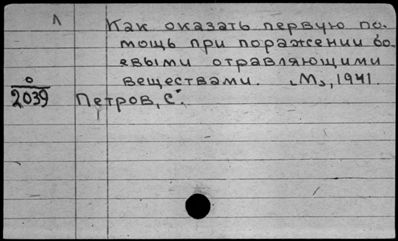 Л
Как оказать первую по-
мощь при поражении бо-
евыми отравляющими
веществами. М., 1941.
О
2039 Петров, С.